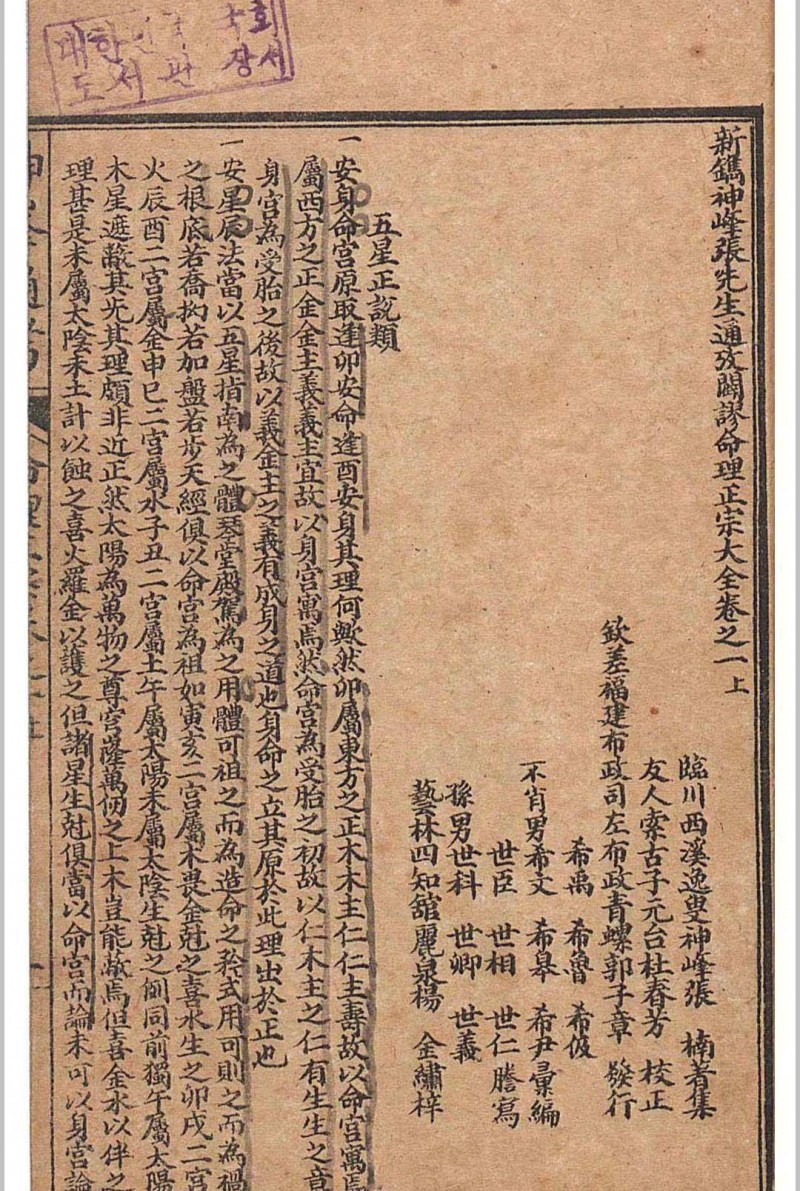 대한민국 국회
도서관장서
新鐫神峰張先生通攷闢謬命理正宗大全卷之一上
臨川西溪逸叟神峰張 楠著集
友人索古子元台杜春芳 校正
欽差福建布政司左布政青螺郭子章 發行
希禹 希魯 希伋
不肖男希文 希皋 希尹彙編
世臣 世相 世仁謄寫
孫男世科 世卿 世義
藝林四知舘麗泉楊 金繡梓
五星正說類
一安身命宮原取逢卯安命逢酉安身其理何歟然卯屬東方之正木木主仁仁主壽故以命宮寓焉
屬西方之正金金主義義主宜故以身宮寓焉然命宮為受胎之初故以仁木主之仁有生生之意
身宮為受胎之後故以義金主之義有成身之道也身命之立其原於此理出於正也
一安星辰法當以五星指南為之體琴堂殿駕為之用體可祖之而為造命之矜式用可則之而為禍
之根底若喬拘若加盤若步天經俱以命宮為祖如寅亥二宮屬木畏金尅之喜水生之卯戌二宮
火辰酉二宮屬金申巳二宮屬水子丑二宮屬土午屬太陽未屬太陰生尅之例同前獨午屬太陽
木星遮蔽其光其理頗非近正然太陽為萬物之尊宮蓬萬仞之上木豈能蔽焉但喜金水以伴之
理甚是未屬太陰未土計以蝕之喜火羅金以護之但諸星生尅俱當以命宮而論未可以身宮論